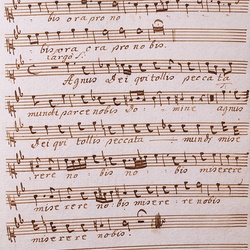 bis ora pro no
bis ora ora pro nobis.
largo
Agnus Dei qui tollis peccata
mundi parce nobis Do mine agnus
Dei qui tollis peccata mundi mise
rere no bis no bis miserere
mise rere no bis misere re nobis
miserere nobis.